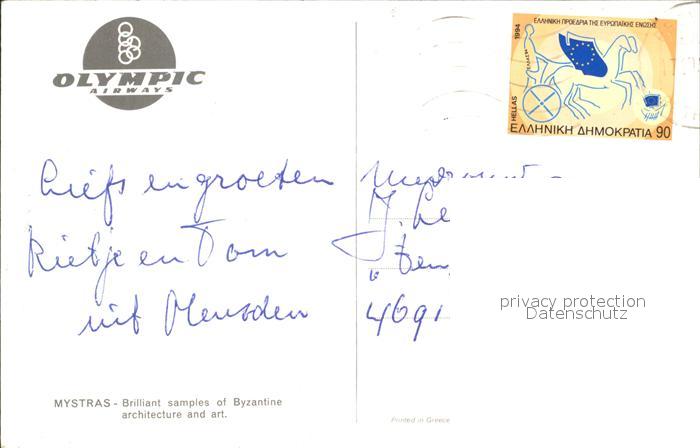 OLYMPIC
AIRWAYS
1994
ΕΛΛΗΝΙΚΗ ΠΡΟΕΔΡΙΑ ΤΗΣ ΕΥΡΩΠΑΪΚΗΣ ΕΝΩΣΗΣ
HELLAS
ΕΛΛΗΝΙΚΗ ΔΗΜΟΚΡΑΤΙΑ 90
Liefs en groeten
Rietje en Tom
uit Heusden
J. Le
4691
privacy protection
Datenschutz
MYSTRAS - Brilliant samples of Byzantine
architecture and art.
Printed in Greece